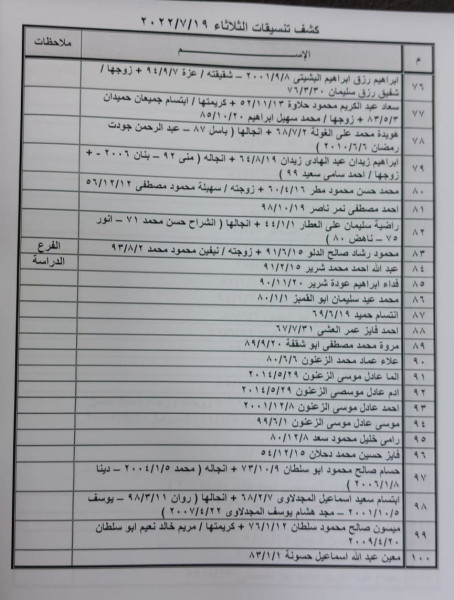 كشف تنسيقات الثلاثاء ٢٠٢٢/٧/١٩
م الإســـم ملاحظات
٧٦ ابراهيم رزق ابراهيم البشيتى ٢٠٠١/٩/٨ – شقيقته / عزة ٩٤/٩/٧ + زوجها /
شفيق رزق سليمان ٧٦/٣/٣٠
٧٧ سعاد عبد الكريم محمود حلاوة ٥٢/١١/١٣ + كريمتها / ابتسام جميعان حميدان
٨٣/٥/٣ + زوجها / محمد سهيل ابراهيم ٨٥/١٠/٢٠
٧٨ هويدة محمد على الغولة ٦٨/٧/٢ + انجالها ( باسل ٨٧ – عبد الرحمن جودت
رمضان ٢٠١٠/٦/٦ )
٧٩ ابراهيم زيدان عبد الهادى زيدان ٦٤/٨/١٩ + انجاله ( منى ٩٢ – بنان ٢٠٠٦ - +
زوجها / احمد سامى سعيد ٩٩ )
٨٠ محمد حسن محمود مطر ٦٠/٤/١٦ + زوجته / سهيلة محمود مصطفى ٥٦/١٢/١٢
٨١ احمد مصطفى نمر ناصر ٩٨/١٠/١٩
٨٢ راضية سليمان على العطار ٤٤/١/١ + انجالها ( انشراح حسن محمد ٧١ – انور
٧٥ – ناهض ٨٠ )
٨٣ محمود رشاد صالح الدلو ٩١/٦/١٥ + زوجته / نيفين محمود محمد ٩٣/٨/٢ الفرع
٨٤ عبد الله احمد محمد شرير ٩١/٢/١٥ الدراسة
٨٥ فداء ابراهيم عودة شرير ٩٠/١١/٢٠
٨٦ محمد عيد سليمان ابو القمبز ٨٠/١/١
٨٧ انتسام حميد ٦٩/٦/١٩
٨٨ احمد فايز عمر العشى ٦٧/٧/٣١
٨٩ مروة محمد مصطفى ابو شقفة ٨٩/٩/٢٠
٩٠ علاء عماد محمد الزعنون ٨٠/٦/٦
٩١ الما عادل موسى الزعنون ٢٠١٤/٥/٢٩
٩٢ ادم عادل موسصى الزعنون ٢٠١٤/٥/٢٩
٩٣ احمد عادل موسى الزعنون ٢٠٠١/١٢/٨
٩٤ موسى عادل موسى الزعنون ٩٩/٦/١
٩٥ رامى خليل محمود سعد ٨٠/١٢/٨
٩٦ فايز حسين محمد دحلان ٥٤/١٢/١٥
٩٧ حسام صالح محمود ابو سلطان ٧٣/١٠/٩ + انجاله ( محمد ٢٠٠٤/١/٥ – دينا
٢٠٠٦/١/٨ )
٩٨ ابتسام سعيد اسماعيل المجدلاوى ٦٨/٢/٧ + انجالها ( روان ٩٨/٣/١١ – يوسف
٢٠٠١/١٠/٥ – مجد هشام يوسف المجدلاوى ٢٠٠٧/٤/٢٢ )
٩٩ ميسون صالح محمود سلطان ٧٦/١/١٢ + كريمتها / مريم خالد نعيم ابو سلطان
٢٠٠٩/٤/٢٠
١٠٠ معين عبد الله اسماعيل حسونة ٨٣/١/١